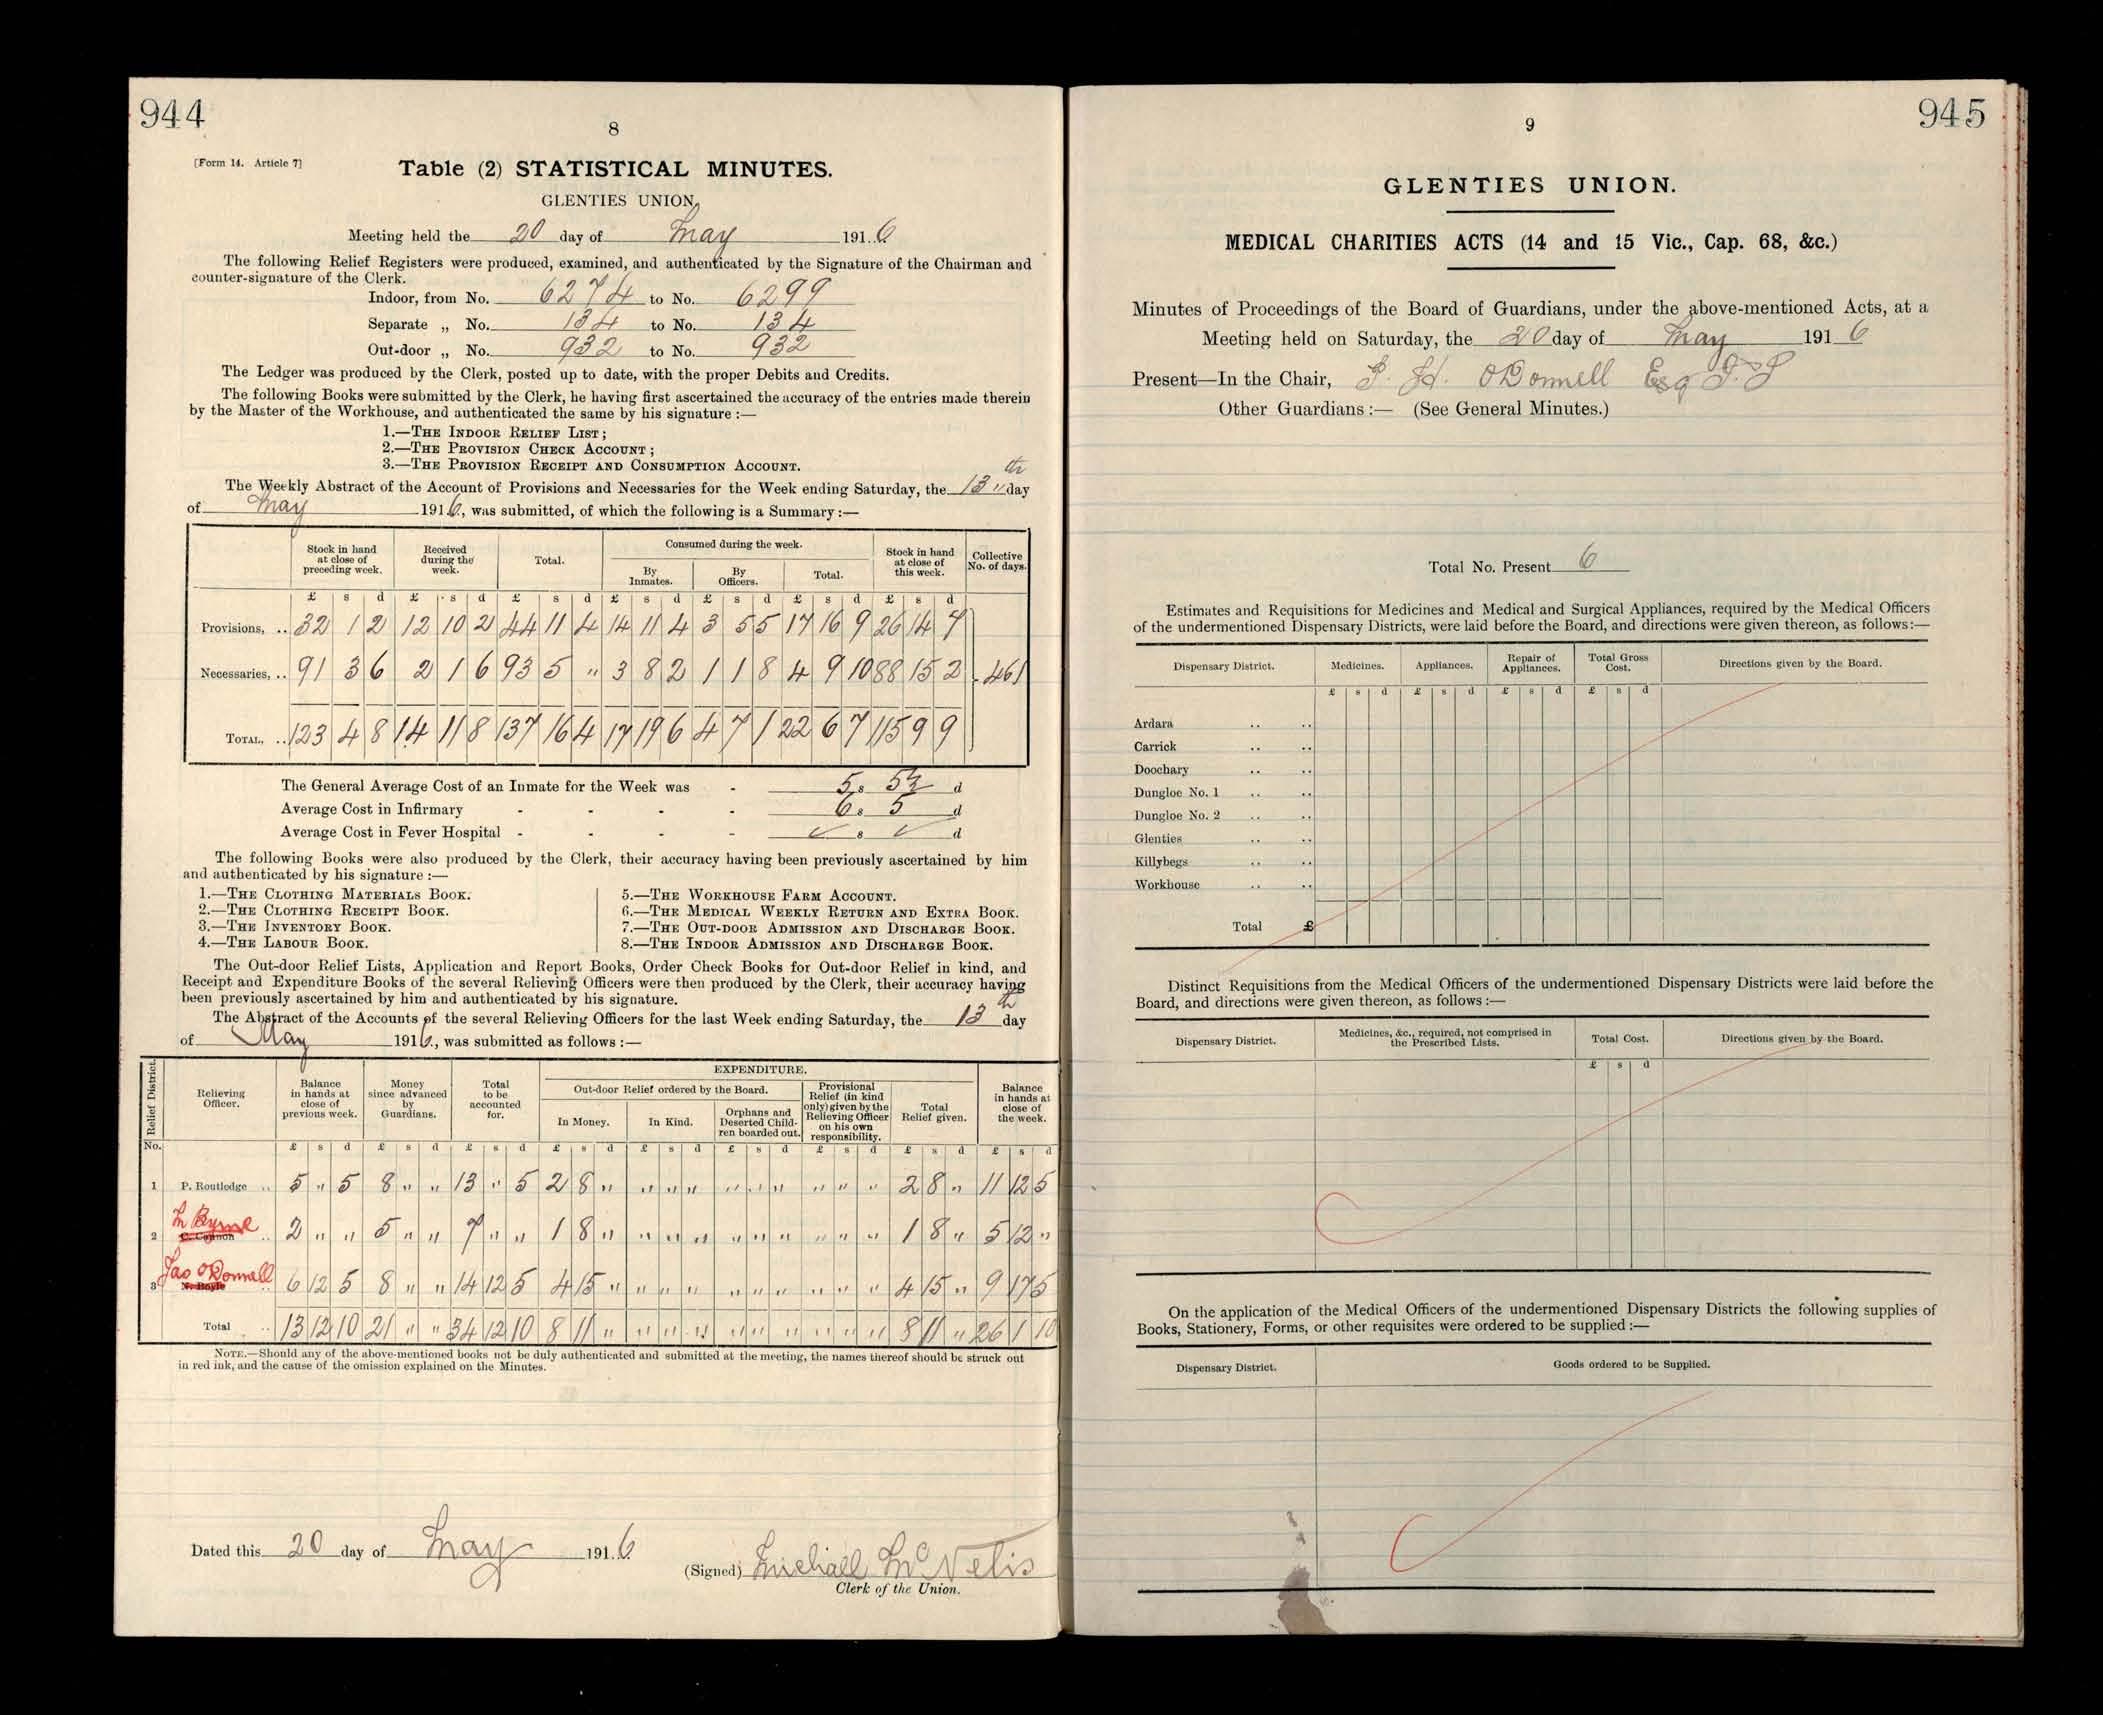 944
8
[Form 14. Article 7]
Table (2) STATISTICAL MINUTES.
GLENTIES UNION,
Meeting held the 20 day of May 1916
The following Relief Registers were produced, examined, and authenticated by the Signature of the Chairman and
counter-signature of the Clerk.
Indoor, from No. 6274 to No. 6299
Separate „ No. 134 to No. 134
Out-door „ No. 932 to No. 932
The Ledger was produced by the Clerk, posted up to date, with the proper Debits and Credits.
The following Books were submitted by the Clerk, he having first ascertained the accuracy of the entries made therein
by the Master of the Workhouse, and authenticated the same by his signature :—
1.—THE INDOOR RELIEF LIST;
2.—THE PROVISION CHECK ACCOUNT;
3.—THE PROVISION RECEIPT AND CONSUMPTION ACCOUNT.
The Weekly Abstract of the Account of Provisions and Necessaries for the Week ending Saturday, the 13th day
of May 1916, was submitted, of which the following is a Summary:—
Stock in hand at close of preceding week. Received during the week. Total. Consumed during the week. By Inmates. By Officers. Total. Stock in hand at close of this week. Collective No. of days.
£ s d £ s d £ s d £ s d £ s d £ s d £ s d
Provisions, .. 32 1 2 12 10 2 44 11 4 14 11 4 3 5 5 17 16 9 26 14 7
Necessaries, .. 91 3 6 2 1 6 93 5 „ 3 8 2 1 1 8 4 9 10 88 15 2 461
TOTAL, .. 123 4 8 14 11 8 137 16 4 17 19 6 4 7 1 22 6 7 115 9 9
The General Average Cost of an Inmate for the Week was - 5 s 5½ d
Average Cost in Infirmary - - - - 6 s 5 d
Average Cost in Fever Hospital - - - - s d
The following Books were also produced by the Clerk, their accuracy having been previously ascertained by him
and authenticated by his signature :—
1.—THE CLOTHING MATERIALS BOOK.
2.—THE CLOTHING RECEIPT BOOK.
3.—THE INVENTORY BOOK.
4.—THE LABOUR BOOK.
5.—THE WORKHOUSE FARM ACCOUNT.
6.—THE MEDICAL WEEKLY RETURN AND EXTRA BOOK.
7.—THE OUT-DOOR ADMISSION AND DISCHARGE BOOK.
8.—THE INDOOR ADMISSION AND DISCHARGE BOOK.
The Out-door Relief Lists, Application and Report Books, Order Check Books for Out-door Relief in kind, and
Receipt and Expenditure Books of the several Relieving Officers were then produced by the Clerk, their accuracy having
been previously ascertained by him and authenticated by his signature.
The Abstract of the Accounts of the several Relieving Officers for the last Week ending Saturday, the 13th day
of May 1916, was submitted as follows :—
Relief District. Relieving Officer. Balance in hands at close of previous week. Money since advanced by Guardians. Total to be accounted for. EXPENDITURE. Out-door Relief ordered by the Board. In Money. In Kind. Orphans and Deserted Children boarded out. Provisional Relief (in kind only) given by the Relieving Officer on his own responsibility. Total Relief given. Balance in hands at close of the week.
No. £ s d £ s d £ s d £ s d £ s d £ s d £ s d £ s d £ s d
1 P. Routledge .. 5 „ 5 8 „ „ 13 „ 5 2 8 „ „ „ „ „ „ „ „ „ „ 2 8 „ 11 12 5
M Byrne
2 C. Cannon .. 2 „ „ 5 „ „ 7 „ „ 1 8 „ „ „ „ „ „ „ „ „ „ 1 8 „ 5 12 „
Jas O'Donnell
3 N. Boyle .. 6 12 5 8 „ „ 14 12 5 4 15 „ „ „ „ „ „ „ „ „ „ 4 15 „ 9 17 5
Total .. 13 12 10 21 „ „ 34 12 10 8 11 „ „ „ „ „ „ „ „ „ „ 8 11 „ 26 1 10
NOTE.—Should any of the above-mentioned books not be duly authenticated and submitted at the meeting, the names thereof should be struck out
in red ink, and the cause of the omission explained on the Minutes.
Dated this 20 day of May 1916
(Signed) Michael McNelis
Clerk of the Union.
945
9
GLENTIES UNION.
MEDICAL CHARITIES ACTS (14 and 15 Vic., Cap. 68, &c.)
Minutes of Proceedings of the Board of Guardians, under the above-mentioned Acts, at a
Meeting held on Saturday, the 20 day of May 1916
Present—In the Chair, P. H. O'Donnell Esq J.P
Other Guardians :— (See General Minutes.)
Total No. Present 6
Estimates and Requisitions for Medicines and Medical and Surgical Appliances, required by the Medical Officers
of the undermentioned Dispensary Districts, were laid before the Board, and directions were given thereon, as follows:—
Dispensary District. Medicines. Appliances. Repair of Appliances. Total Gross Cost. Directions given by the Board.
£ s d £ s d £ s d £ s d
Ardara .. ..
Carrick .. ..
Doochary .. ..
Dungloe No. 1 .. ..
Dungloe No. 2 .. ..
Glenties .. ..
Killybegs .. ..
Workhouse .. ..
Total £
Distinct Requisitions from the Medical Officers of the undermentioned Dispensary Districts were laid before the
Board, and directions were given thereon, as follows :—
Dispensary District. Medicines, &c., required, not comprised in the Prescribed Lists. Total Cost. Directions given by the Board.
£ s d
On the application of the Medical Officers of the undermentioned Dispensary Districts the following supplies of
Books, Stationery, Forms, or other requisites were ordered to be supplied :—
Dispensary District. Goods ordered to be Supplied.